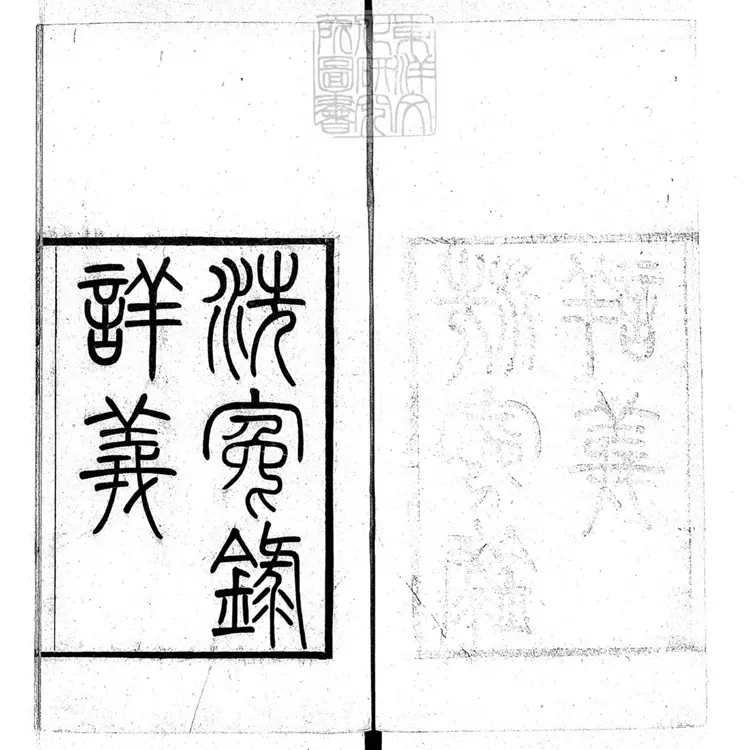 東洋文
化研究
所圖書
洗冤錄
詳義